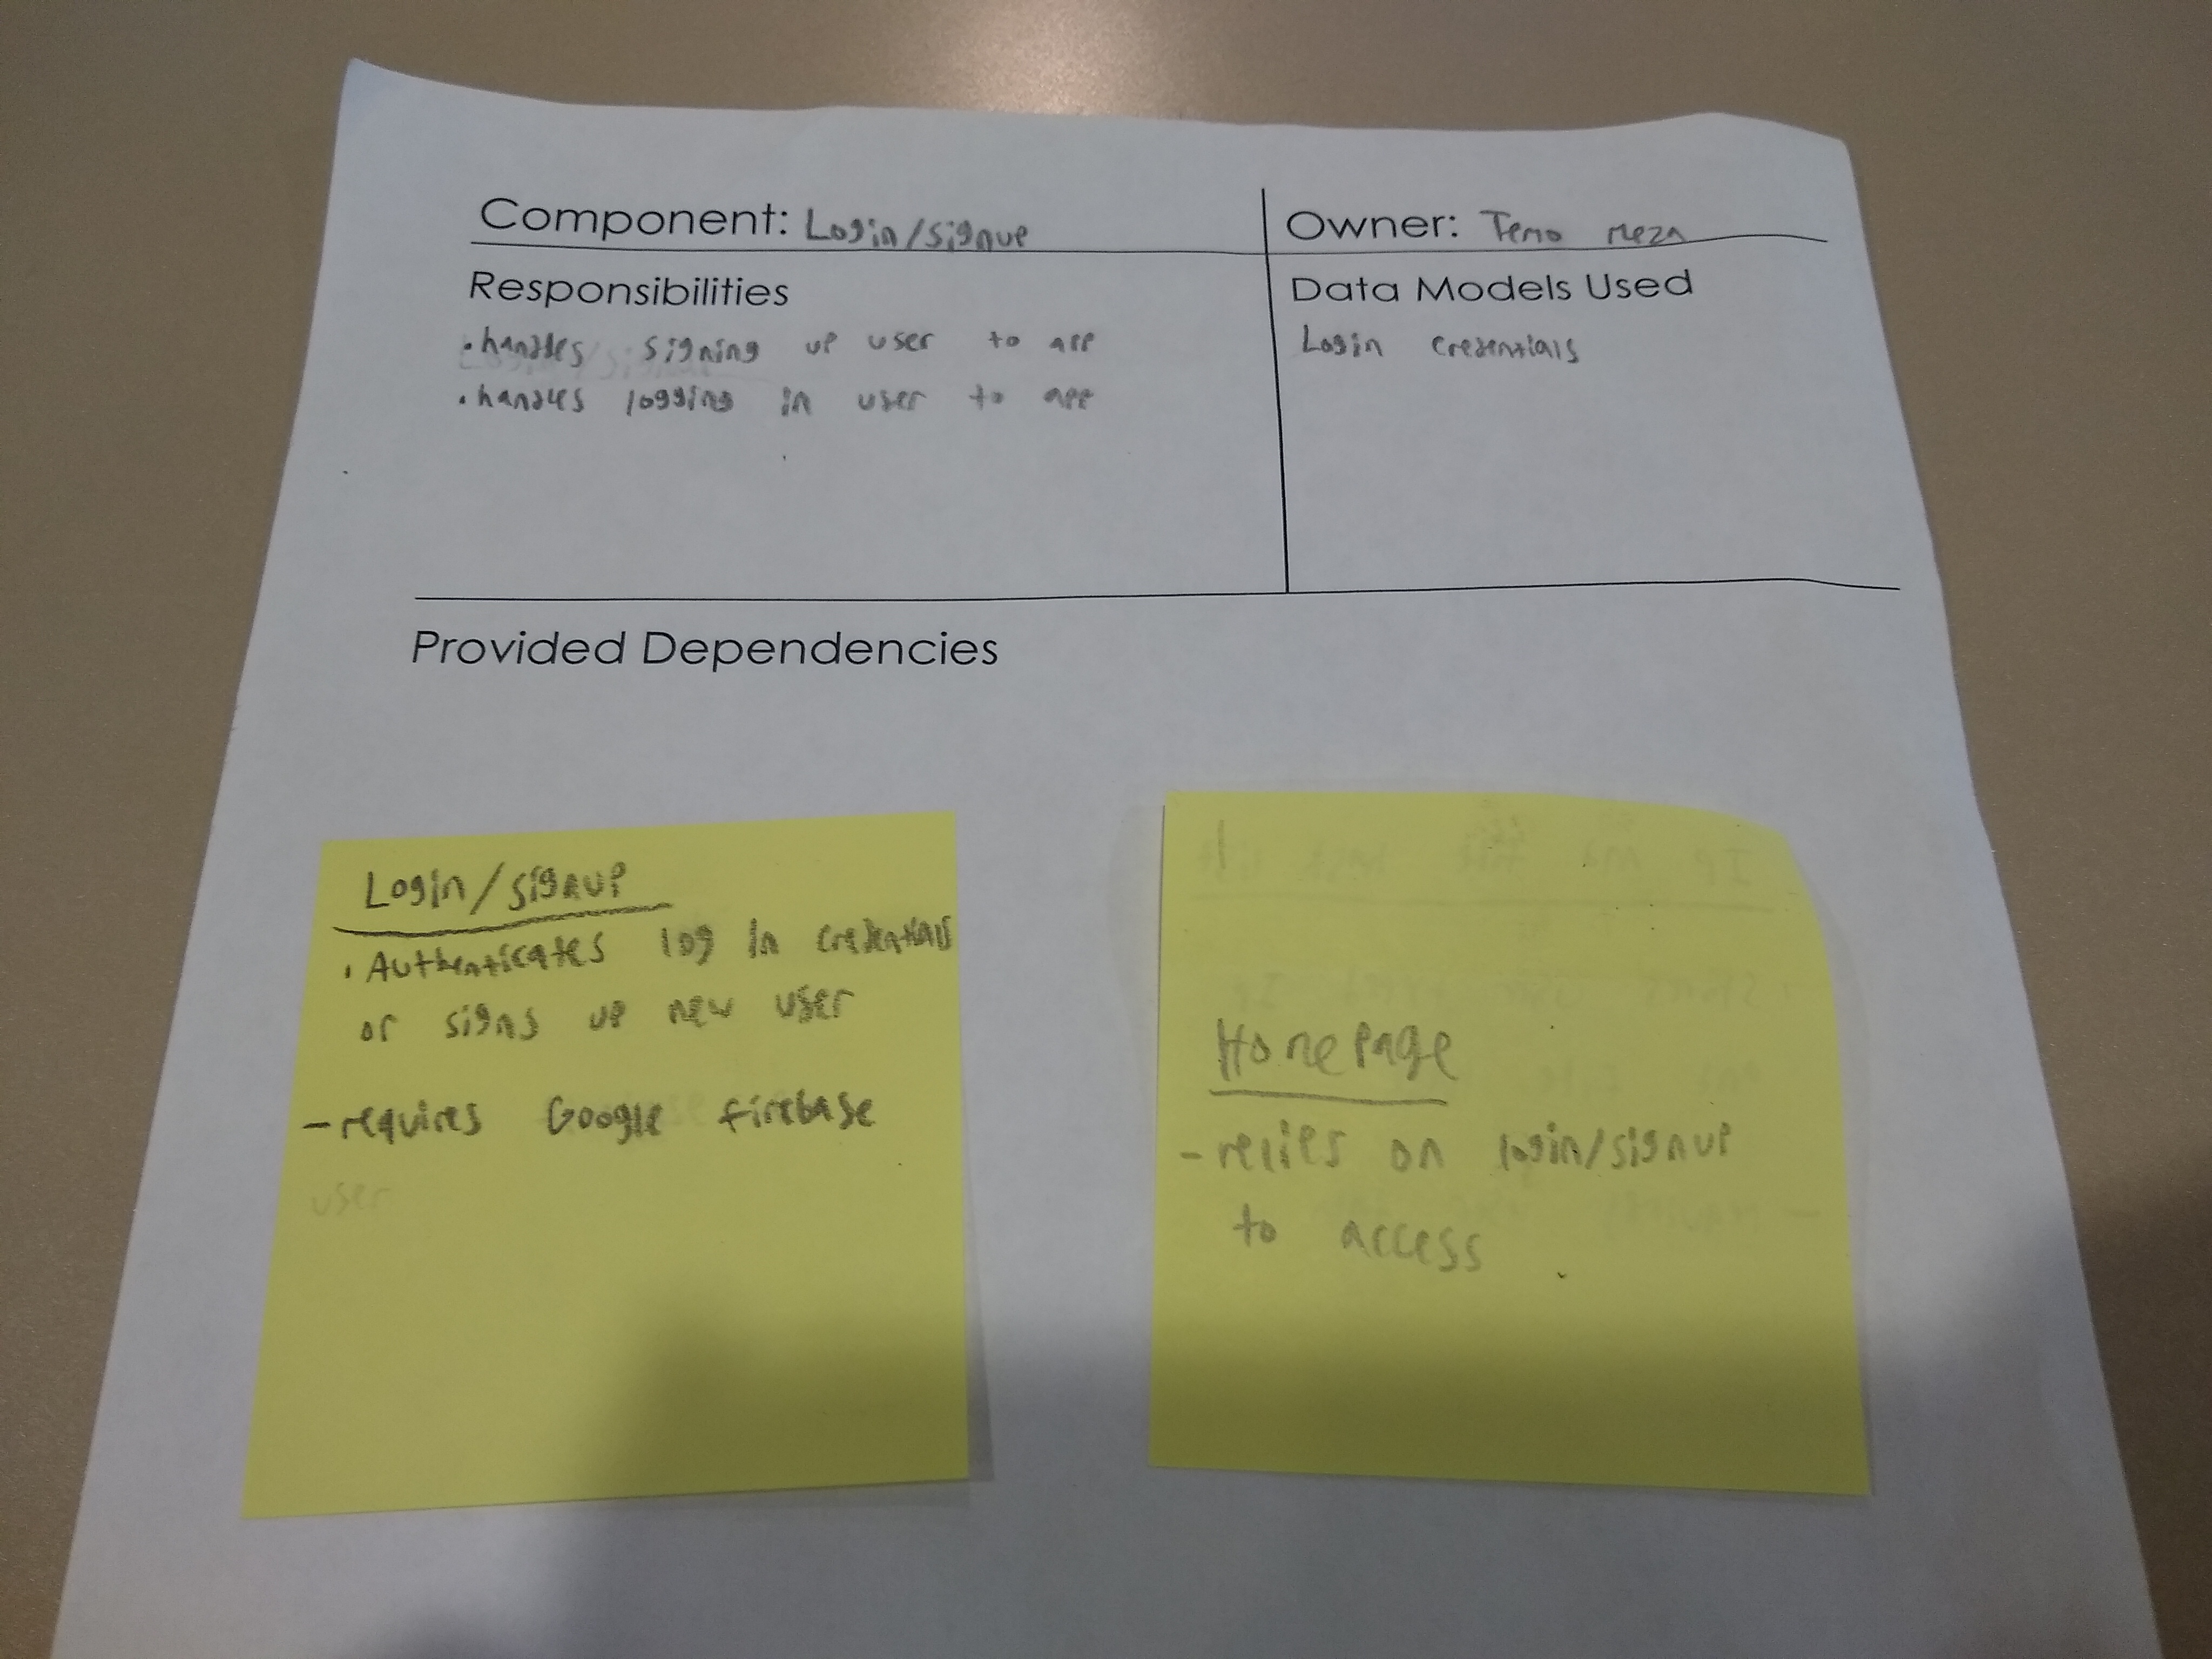 Component: Login/signup
Owner: Temo Meza
Responsibilities
• handles signing up user to app
• handles logging in user to app
Data Models Used
Login credentials
Provided Dependencies
Login/signup
• Authenticates log in credentials
or signs up new user
- requires Google firebase
user
Homepage
- relies on login/signup
to access